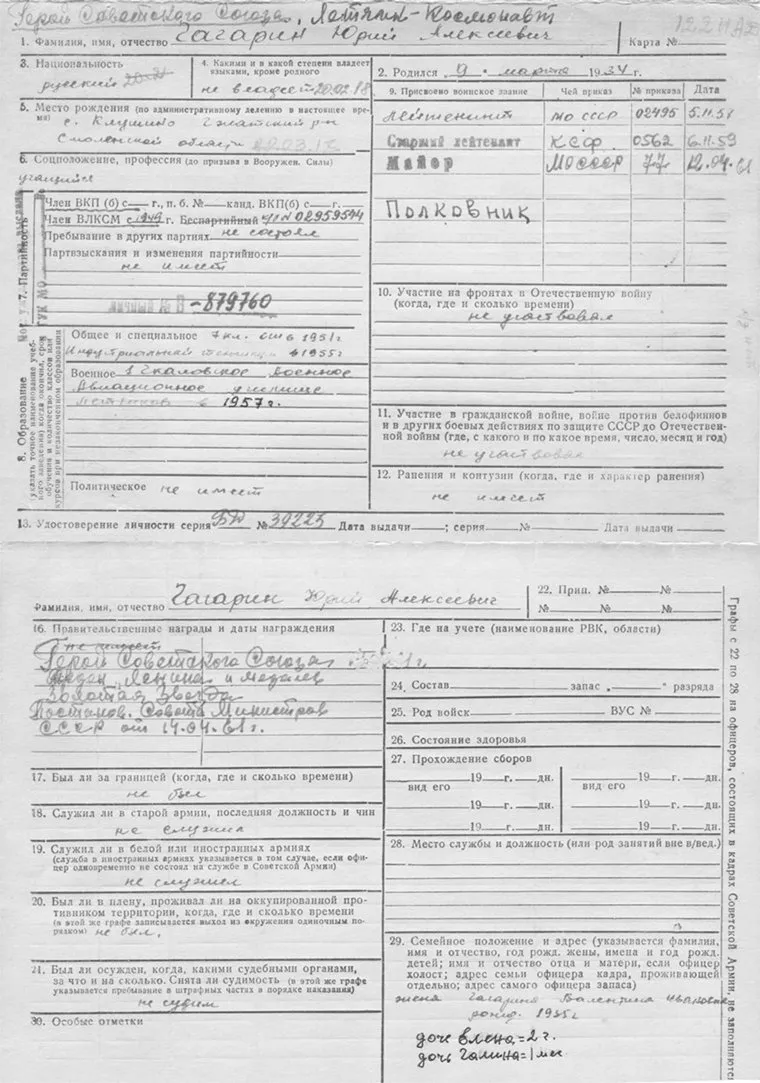 Герой Советского Союза, Летчик-Космонавт
1. Фамилия, имя, отчество Гагарин Юрий Алексеевич
Карта №
3. Национальность
русский
4. Какими и в какой степени владеет
языками, кроме родного
не владеет
2. Родился 9 " марта 1934 г.
9. Присвоено воинское звание Чей приказ № приказа Дата
Лейтенант МО СССР 02495 5.11.57
Старший лейтенант КСФ 0562 6.11.59
Майор МО СССР 77 12.04.61
Полковник
5. Место рождения (по административному делению в настоящее вре-
мя) с. Клушино Гжатский р-н
Смоленской области
6. Соцположение, профессия (до призыва в Вооружен. Силы)
учащийся
7. Партийность
Член ВКП (б) с — г., п. б. № — канд. ВКП(б) с — г.
Член ВЛКСМ с 1949 г. Беспартийный ч/б № 02959544
Пребывание в других партиях не состоял
Партвзыскания и изменения партийности
не имеет
личный № В -879760
10. Участие на фронтах в Отечественную войну
(когда, где и сколько времени)
не участвовал
8. Образование
(указать точное наименование учеб-
ного заведения) когда окончил, срок
обучения и количество классов или
курсов при незаконченном образовании
Общее и специальное 7 кл. 1951 г
Индустриальный техникум в 1955 г
Военное 1 Чкаловское военное
Авиационное училище
летчиков в 1957 г.
Политическое не имеет
11. Участие в гражданской войне, войне против белофиннов
и в других боевых действиях по защите СССР до Отечествен-
ной войны (где, с какого и по какое время, число, месяц и год)
не участвовал
12. Ранения и контузии (когда, где и характер ранения)
не имеет
13. Удостоверение личности серия № 39223 Дата выдачи — ; серия — № — Дата выдачи —
Фамилия, имя, отчество Гагарин Юрий Алексеевич
22. Прип. № №
№ № №
16. Правительственные награды и даты награждения
не имеет
Герой Советского Союза
Орден Ленина и медаль
Золотая Звезда
Постанов. Совета Министров
СССР от 14.04.61 г.
17. Был ли за границей (когда, где и сколько времени)
не был
18. Служил ли в старой армии, последняя должность и чин
не служил
19. Служил ли в белой или иностранных армиях
(служба в иностранных армиях указывается в том случае, если офи-
цер одновременно не состоял на службе в Советской Армии)
не служил
20. Был ли в плену, проживал ли на оккупированной про-
тивником территории, когда, где и сколько времени
(в этой же графе записывается выход из окружения одиночным по-
рядком) не был.
21. Был ли осужден, когда, какими судебными органами,
за что и на сколько. Снята ли судимость (в этой же графе
указывается пребывание в штрафных частях в порядке наказания)
не судим
30. Особые отметки
23. Где на учете (наименование РВК, области)
24. Состав запас „ " разряда
25. Род войск ВУС №
26. Состояние здоровья
27. Прохождение сборов
19 г. дн. 19 г. дн.
вид его вид его
19 г. дн. 19 г. дн.
19 г. дн. 19 г. дн.
28. Место службы и должность (или род занятий вне в/вед.)
29. Семейное положение и адрес (указывается фамилия,
имя и отчество, год рожд. жены, имена и год рожд.
детей; имя и отчество отца и матери, если офицер
холост; адрес семьи офицера кадра, проживающей
отдельно; адрес самого офицера запаса)
жена Гагарина Валентина Ивановна
рожд. 1935 г
дочь Елена = 2 г.
дочь Галина = 1 мес
Графы с 22 по 28 на офицеров, состоящих в кадрах Советской Армии, не заполняются